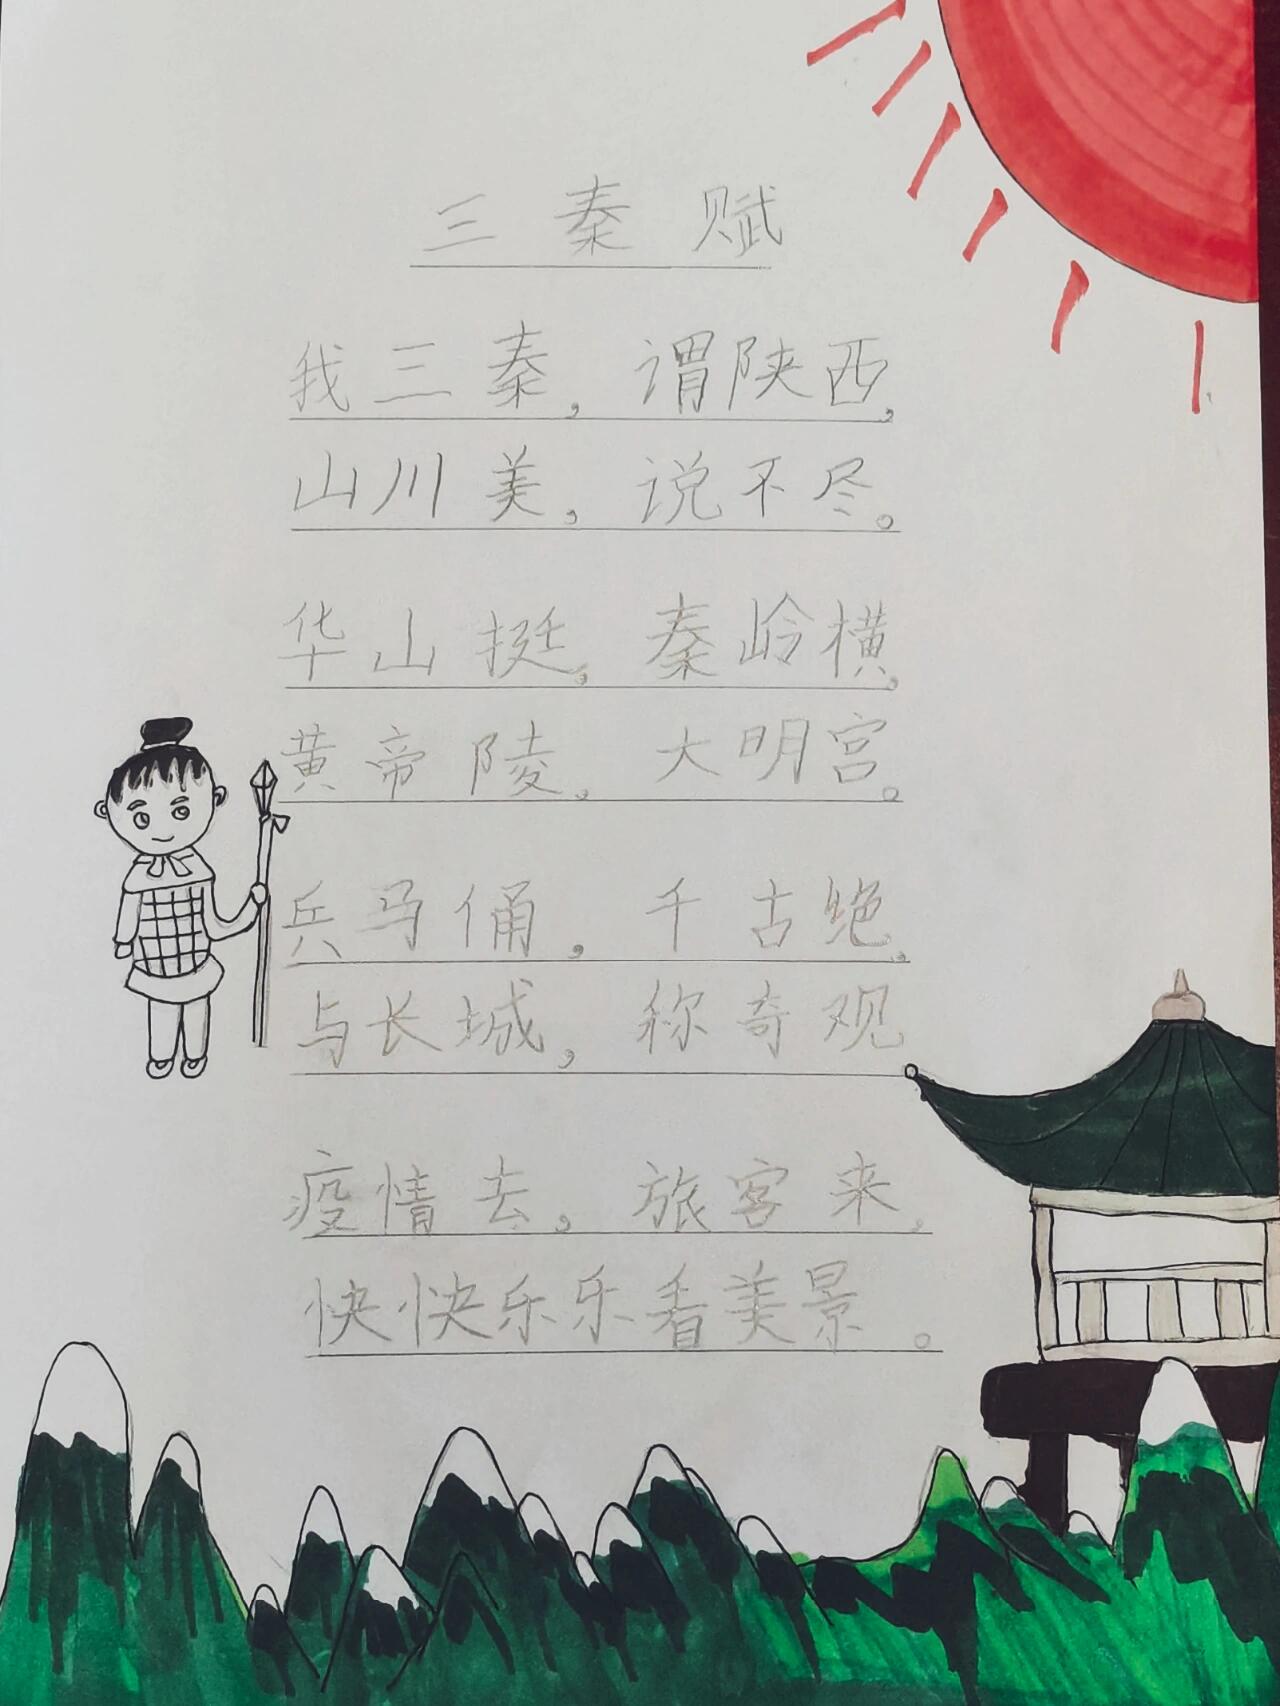 三秦赋
我三秦，谓陕西，
山川美，说不尽。
华山挺，秦岭横，
黄帝陵，大明宫。
兵马俑，千古绝，
与长城，称奇观
疫情去，旅客来，
快快乐乐看美景。